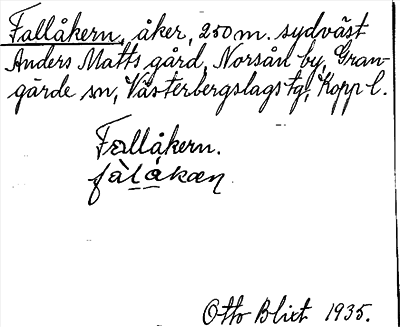 Fallåkern, åker, 250 m. sydväst
Anders Matts gård, Norsån by, Gran-
gärde sn, Västerbergslags tgl, Kopp l.
Fallåkern.
fàlåkæn
Otto Blixt 1935.